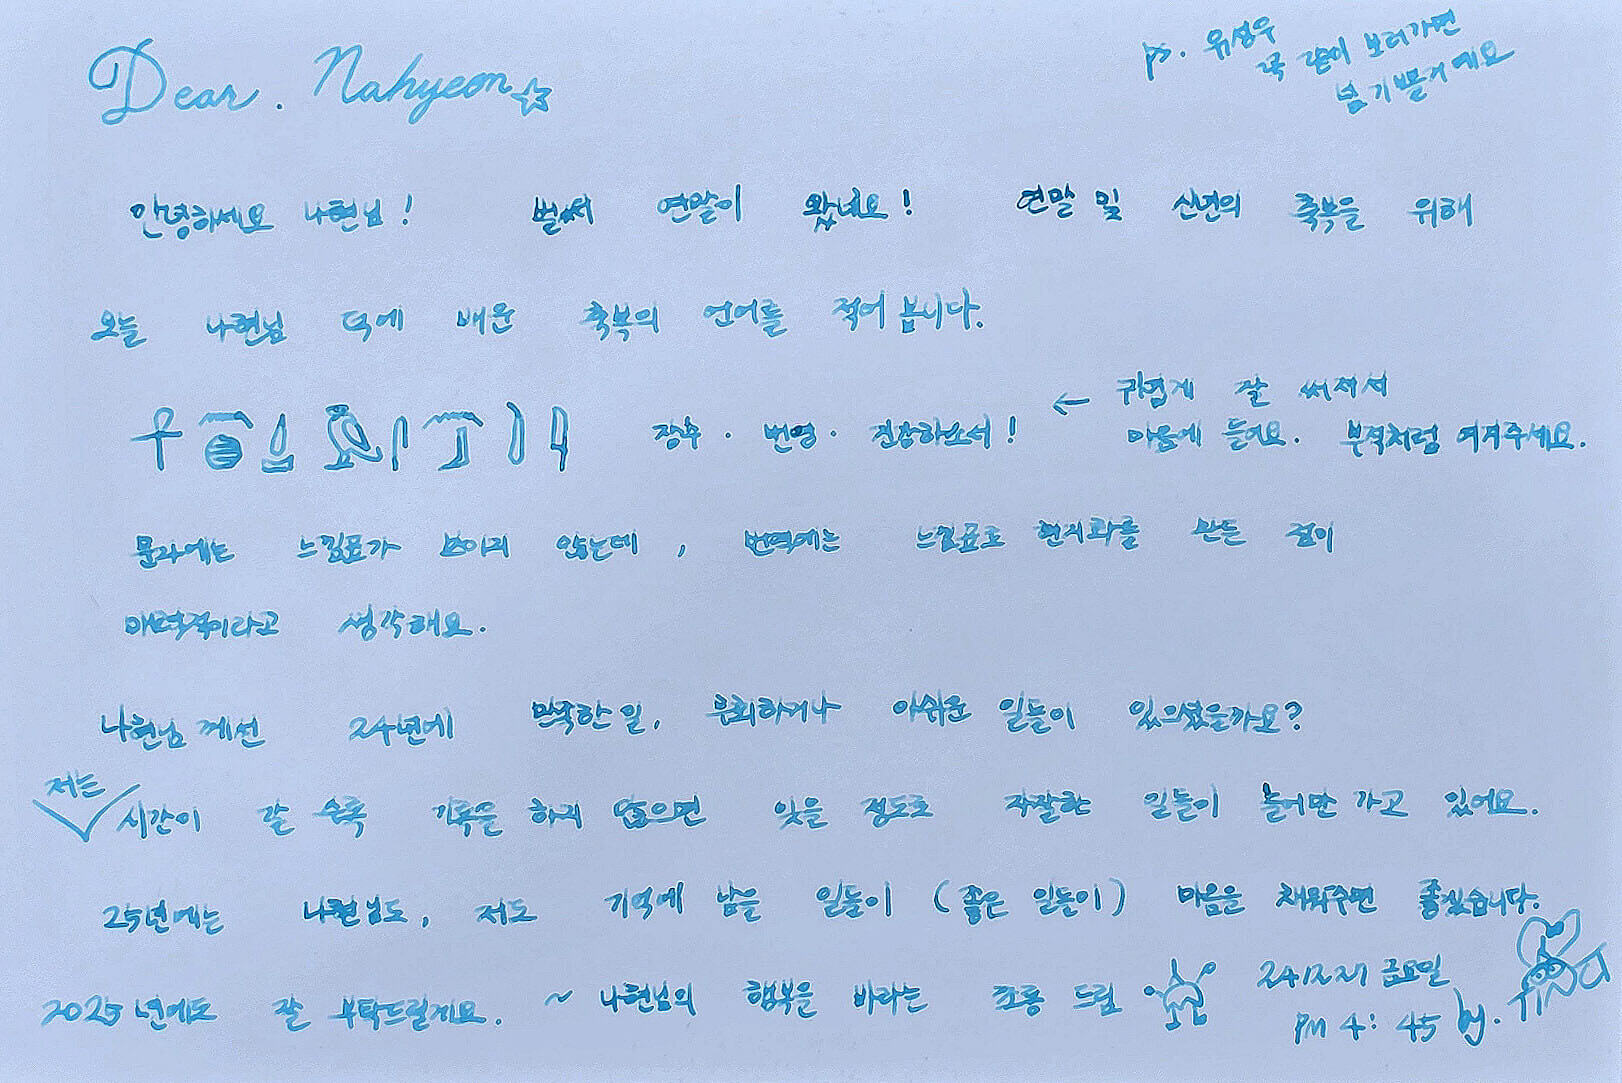 Dear. Nahyeon
ps. 유성우
꼭 같이 보러가면
넘 기쁠거예요
안녕하세요 나현님! 벌써 연말이 왔네요! 연말 및 신년의 축복을 위해
오늘 나현님 덕에 배운 축복의 언어를 적어 봅니다.
장수 · 번영 · 건강하소서!
← 귀엽게 잘 써져서
마음에 들어요. 부적처럼 여겨주세요.
문자에는 느낌표가 보이지 않는데, 번역에는 느낌표로 현지화를 만든 점이
매력적이라고 생각해요.
나현님께선 24년에 만족한 일, 후회하거나 아쉬운 일들이 있으셨을까요?
저는
시간이 갈 수록 기록을 하지 않으면 잊을 정도로 자잘한 일들이 늘어만 가고 있어요.
25년에는 나현님도, 저도 기억에 남을 일들이 (좋은 일들이) 마음을 채워주면 좋겠습니다.
2025년에도 잘 부탁드릴게요. ~ 나현님의 행복을 바라는 초롱 드림
241227 금요일
PM 4:45 by. TINA